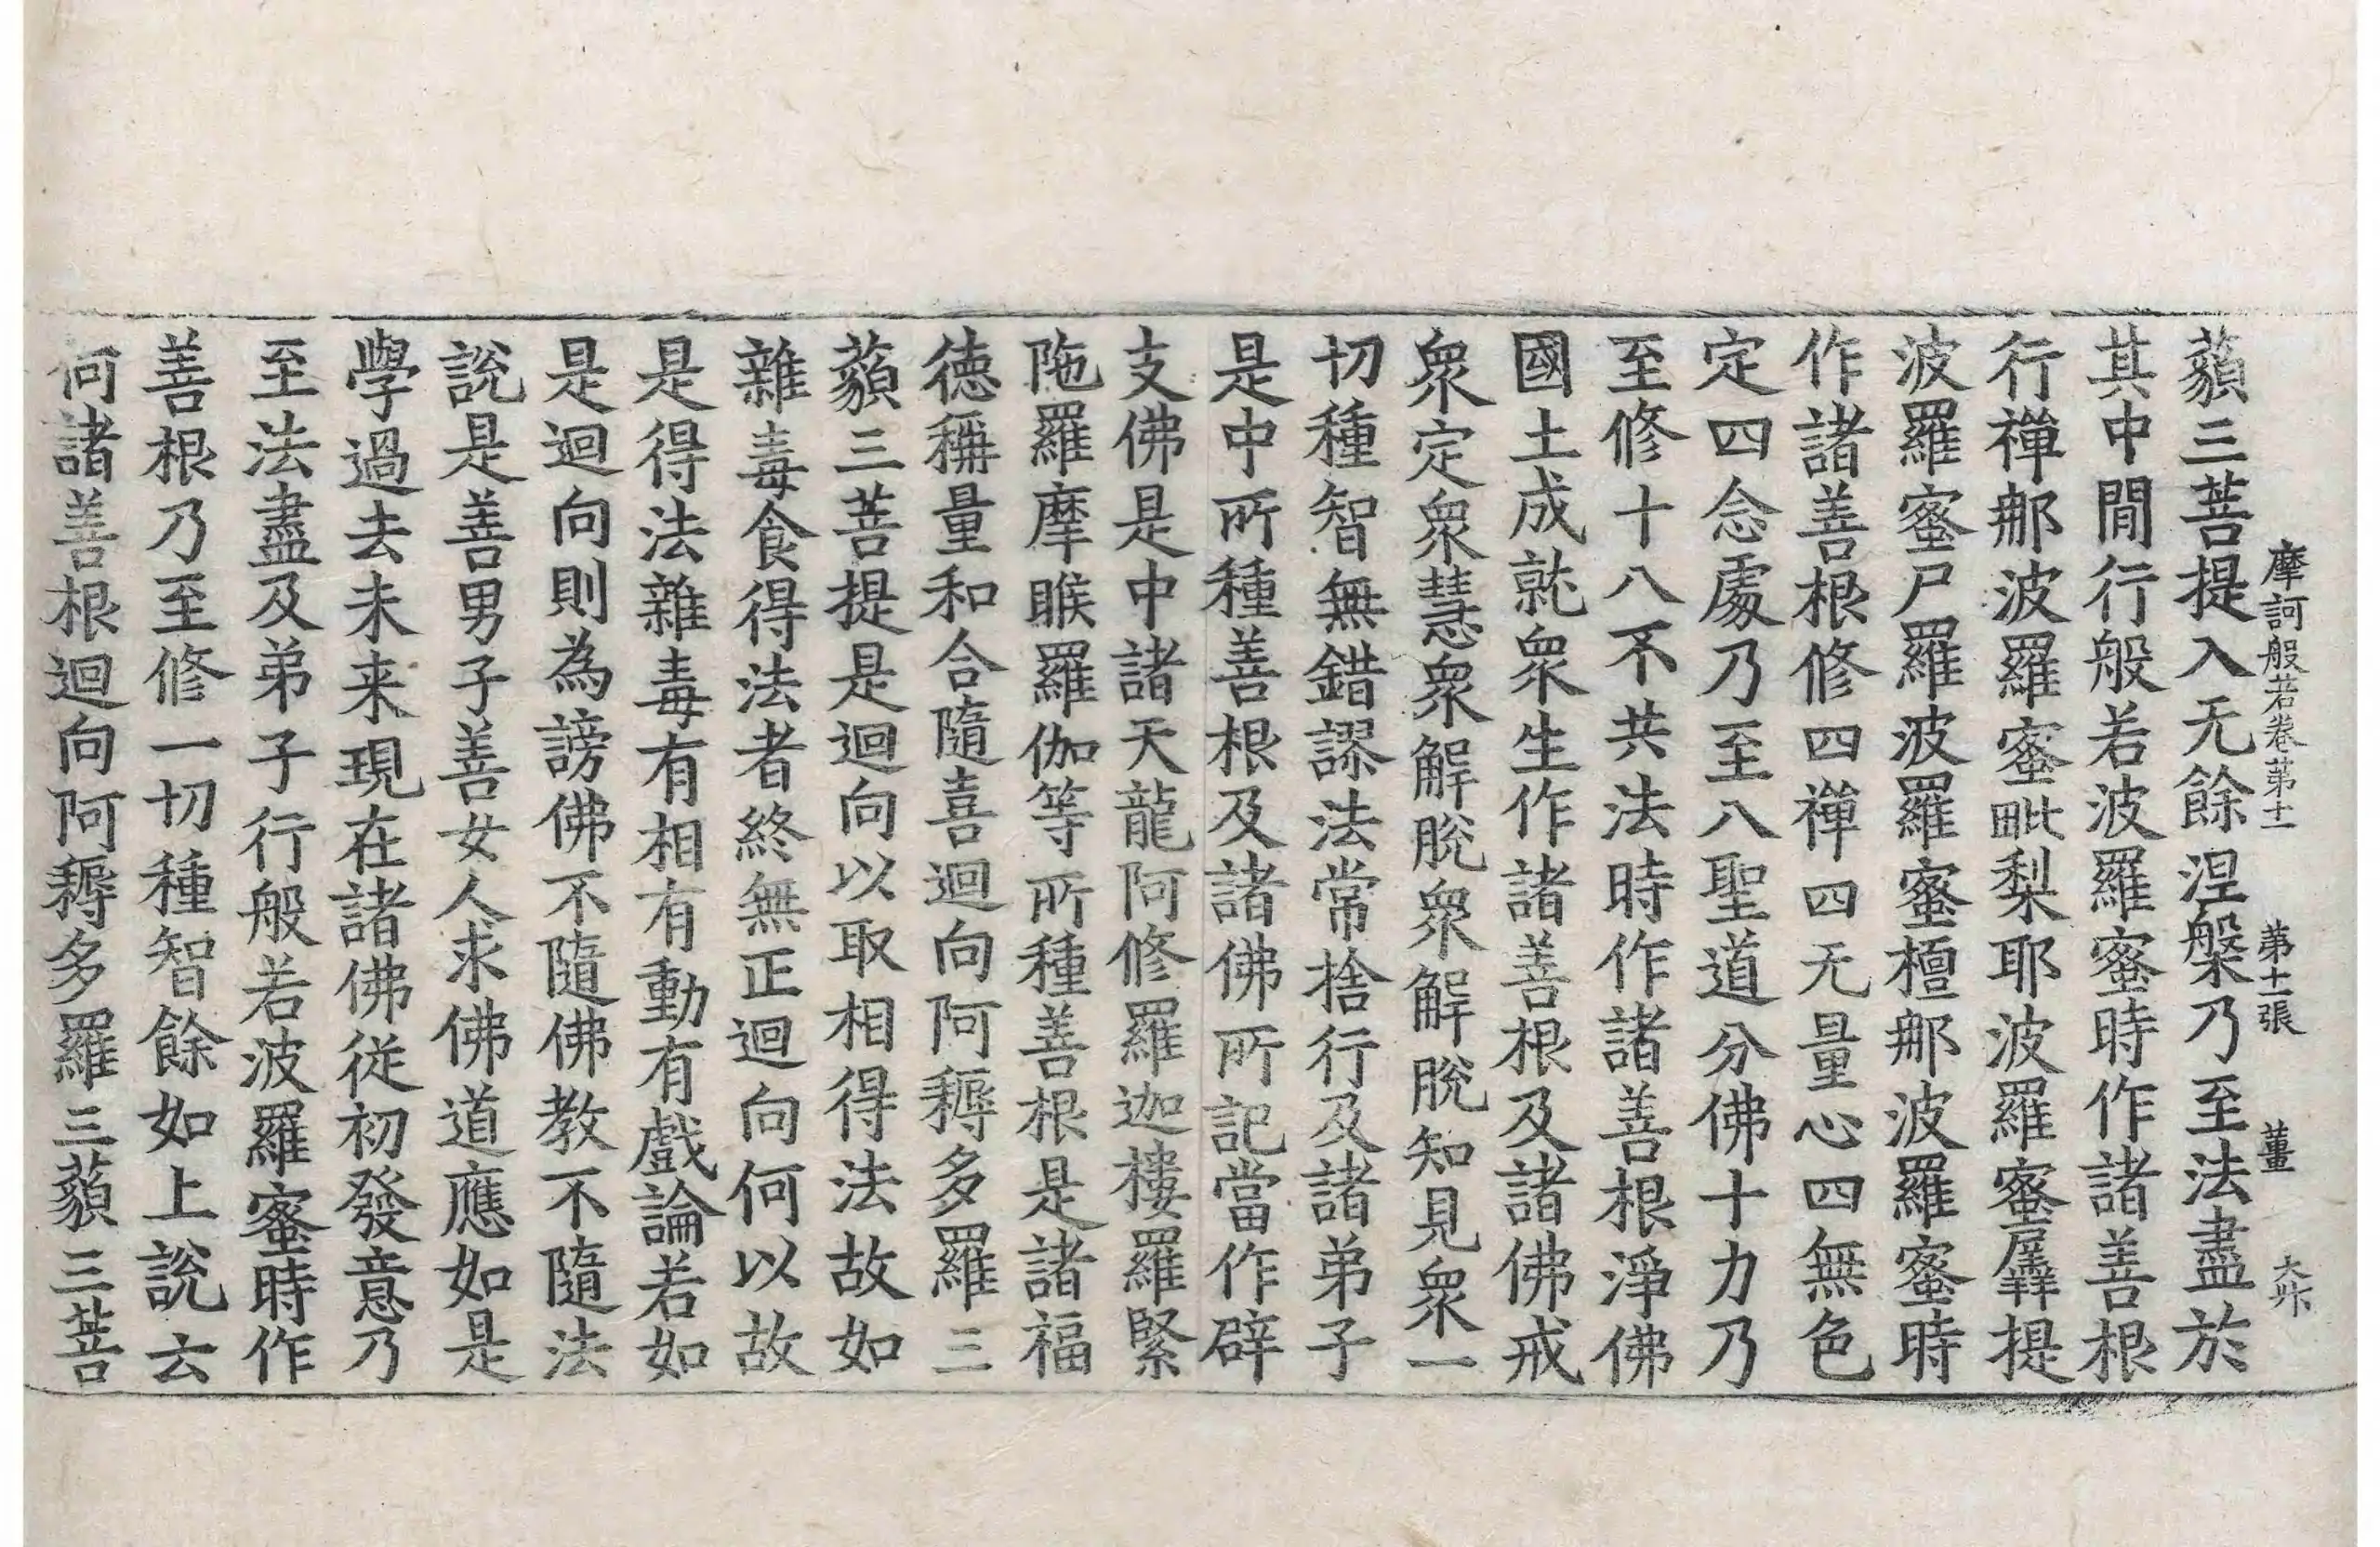 摩訶般若卷第十一 第十一張 薑 大卞
藐三菩提入无餘涅槃乃至法盡於
其中閒行般若波羅蜜時作諸善根
行禪那波羅蜜毗梨耶波羅蜜羼提
波羅蜜尸羅波羅蜜檀那波羅蜜時
作諸善根修四禪四无量心四無色
定四念處乃至八聖道分佛十力乃
至修十八不共法時作諸善根淨佛
國土成就眾生作諸善根及諸佛戒
眾定眾慧眾解脫眾解脫知見眾一
切種智無錯謬法常捨行及諸弟子
是中所種善根及諸佛所記當作辟
支佛是中諸天龍阿修羅迦樓羅緊
陁羅摩睺羅伽等所種善根是諸福
德稱量和合隨喜迴向阿耨多羅三
藐三菩提是迴向以取相得法故如
雜毒食得法者終無正迴向何以故
是得法雜毒有相有動有戲論若如
是迴向則為謗佛不隨佛教不隨法
說是善男子善女人求佛道應如是
學過去未来現在諸佛從初發意乃
至法盡及弟子行般若波羅蜜時作
善根乃至修一切種智餘如上說云
何諸善根迴向阿耨多羅三藐三菩